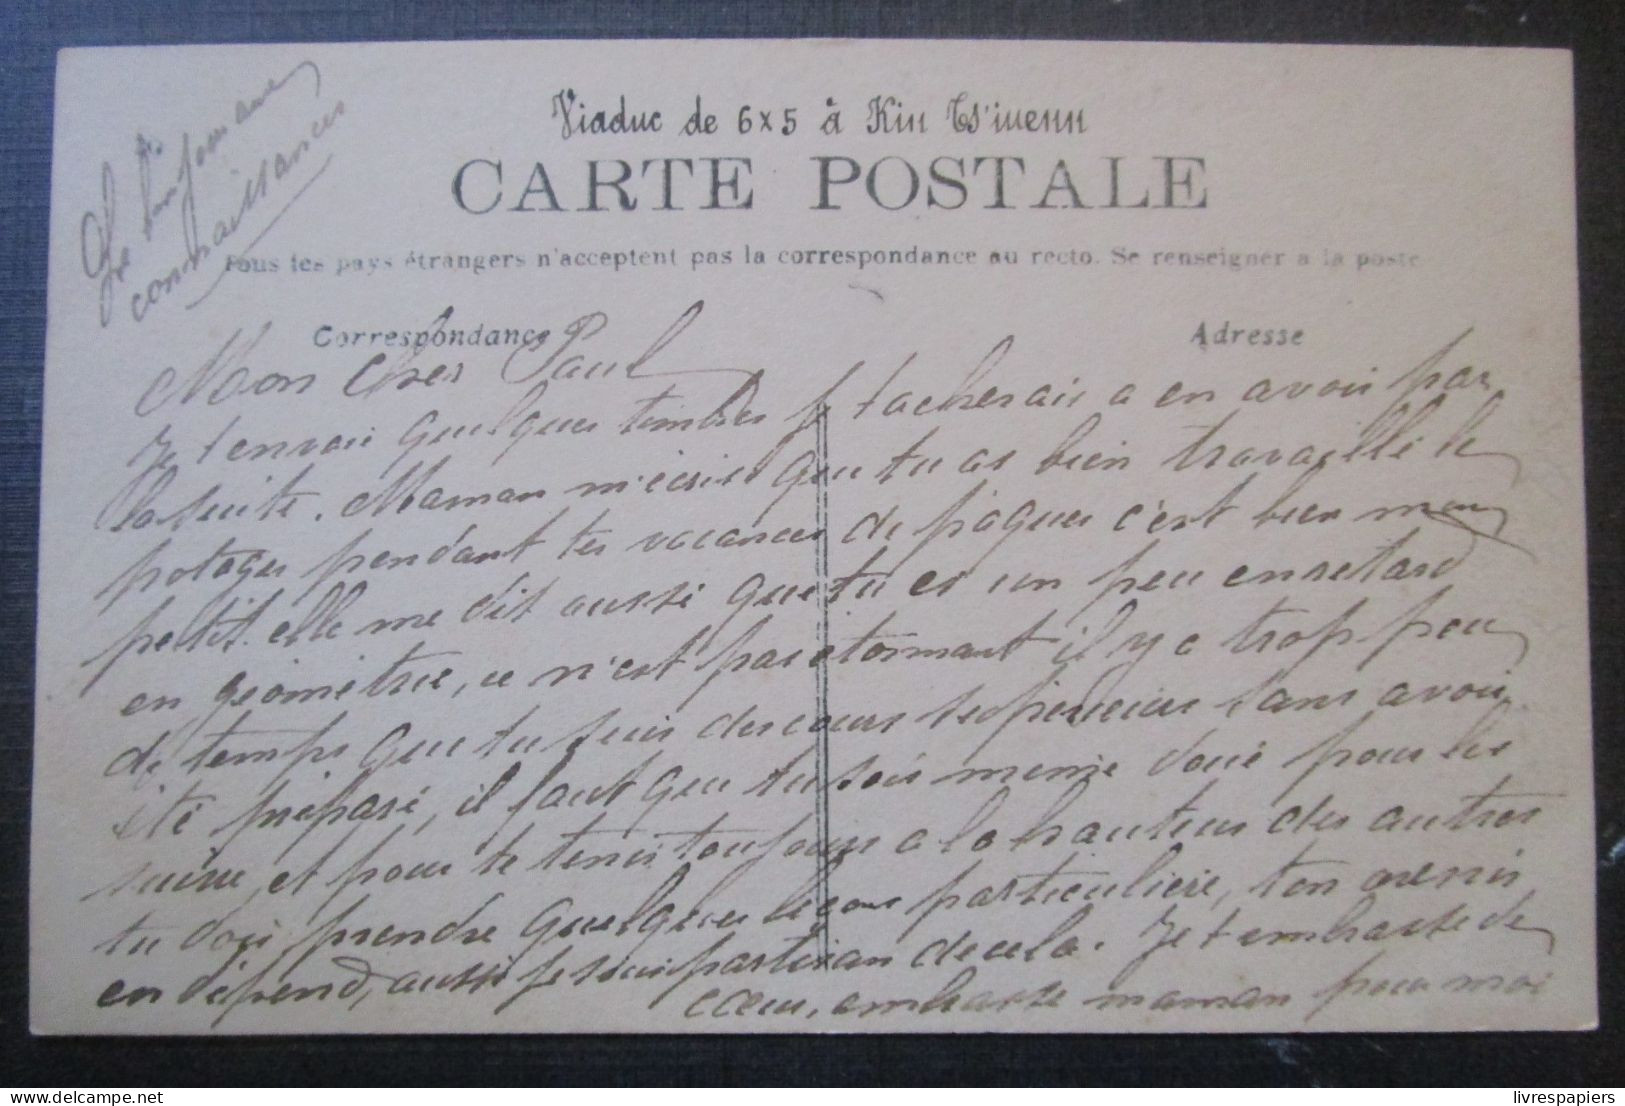 Viaduc de 6x5 à Kin Ts'iuenn
CARTE POSTALE
Tous les pays étrangers n'acceptent pas la correspondance au recto. Se renseigner a la poste
bonjour aux
connaissances
Correspondance
Adresse
Mon cher Paul
Je t envoi quelques timbres je tacherais a en avoir par
la suite. Maman m'écris que tu as bien travaillé le
potager pendant tes vacances de pâques c'est bien mon
petit. elle me dit aussi que tu es un peu en retard
en géométrie, ce n'est pas etonnant il y a trop peu
de temps que tu suis des cours superieurs sans avoir
été préparé, il faut que tu sois meme doué pour les
suivre, et pour te tenir toujours a la hauteur des autres
tu dois prendre quelques leçons particulière, ton avenir
en dépend, aussi je suis partisan de cela. Je t embrasse de
cœur, embrasse maman pour moi
livrespapiers
delcampe.net